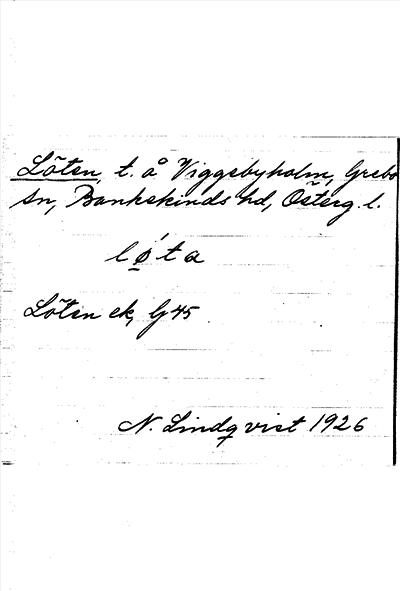 Löten, t. å Viggebyholm, Grebo
sn, Bankekinds hd, Österg. l.
lǿ̠ta
Löten ek, G 45
N. Lindqvist 1926